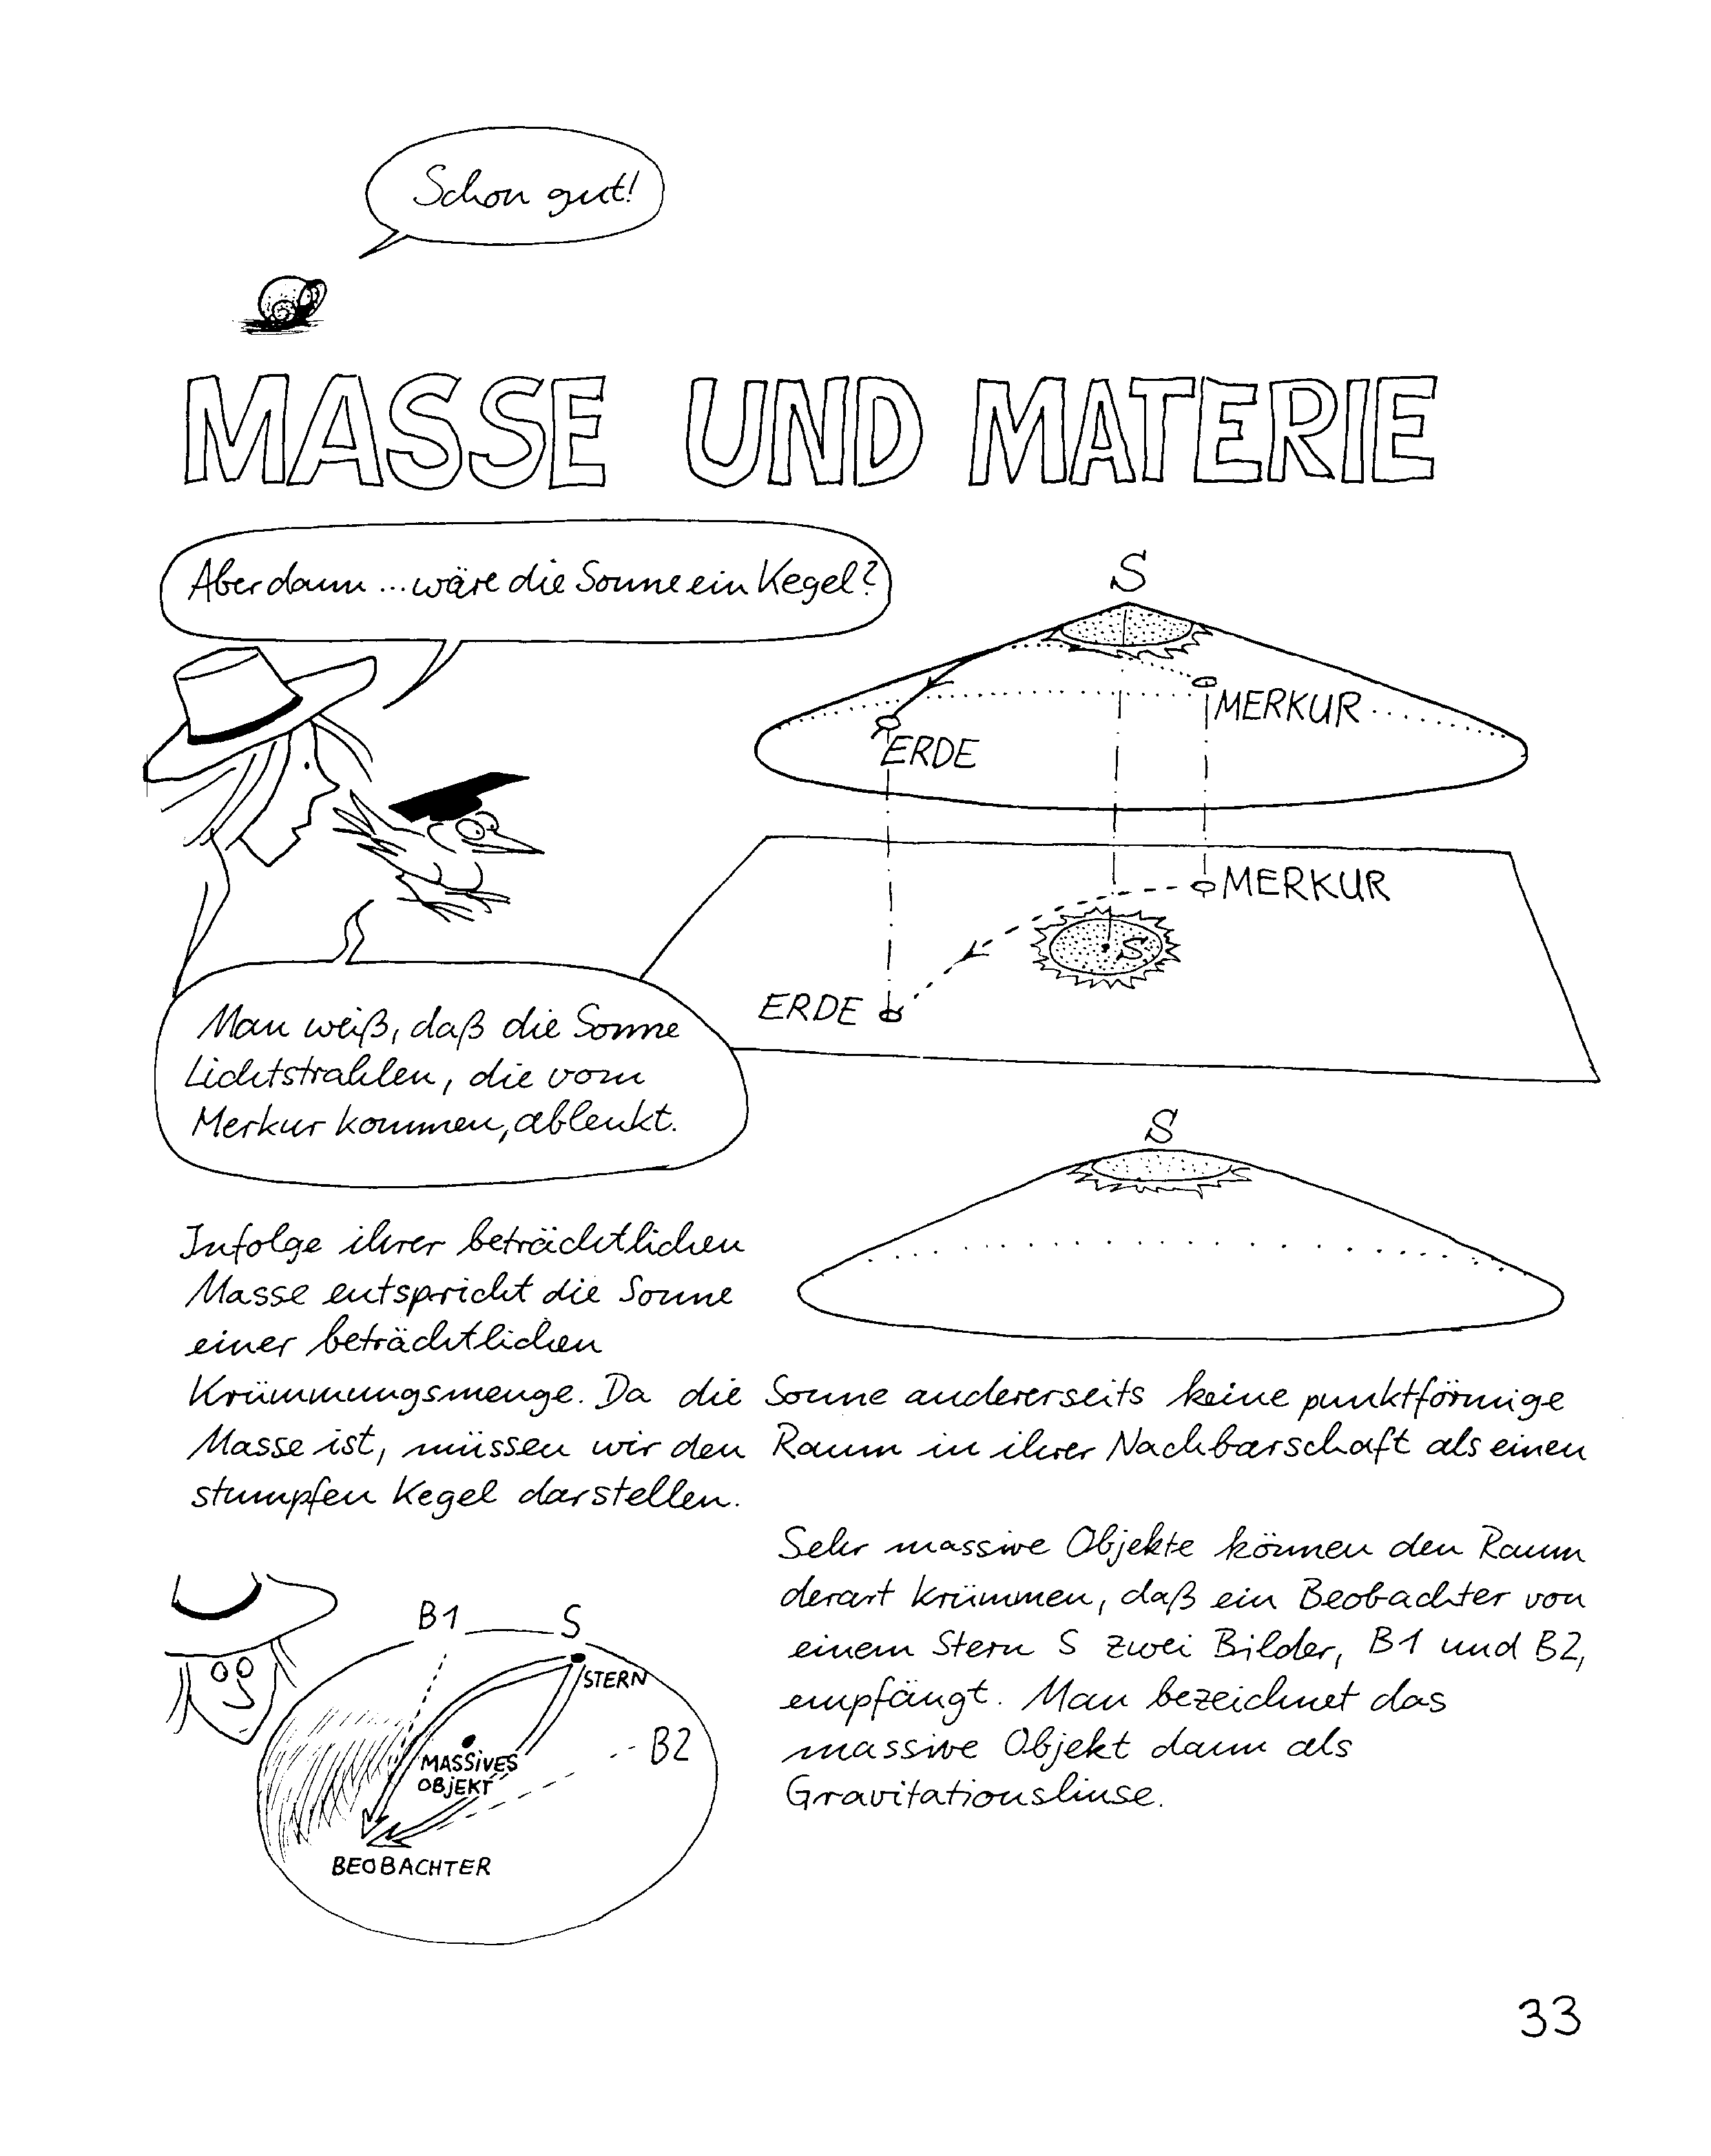 Schon gut!
MASSE UND MATERIE
Aber dann ... wäre die Sonne ein Kegel?
S
MERKUR
ERDE
MERKUR
S
ERDE
Man weiß, daß die Sonne
Lichtstrahlen, die vom
Merkur kommen, ablenkt.
S
Infolge ihrer beträchtlichen
Masse entspricht die Sonne
einer beträchtlichen
Krümmungsmenge. Da die Sonne andererseits keine punktförmige
Masse ist, müssen wir den Raum in ihrer Nachbarschaft als einen
stumpfen Kegel darstellen.
Sehr massive Objekte können den Raum
derart krümmen, daß ein Beobachter von
einem Stern S zwei Bilder, B1 und B2,
empfängt. Man bezeichnet das
massive Objekt dann als
Gravitationslinse.
B1
S
STERN
B2
MASSIVES
OBJEKT
BEOBACHTER
33